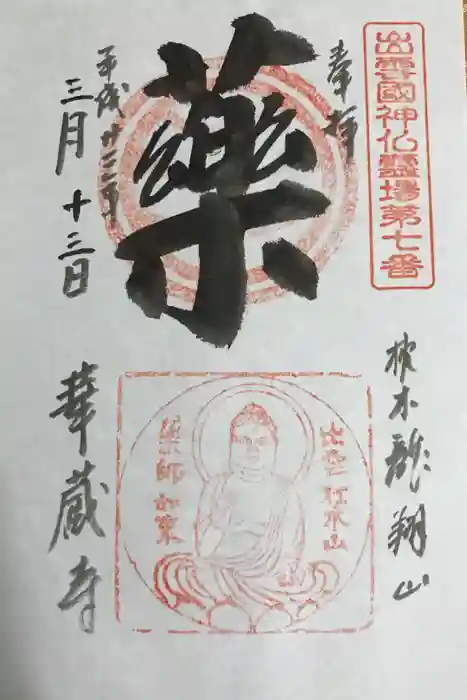 出雲國神仏霊場第七番
奉拝
藥
平成廿二年
三月十三日
枕木龍翔山
出雲枕木山
薬師如来
華蔵寺